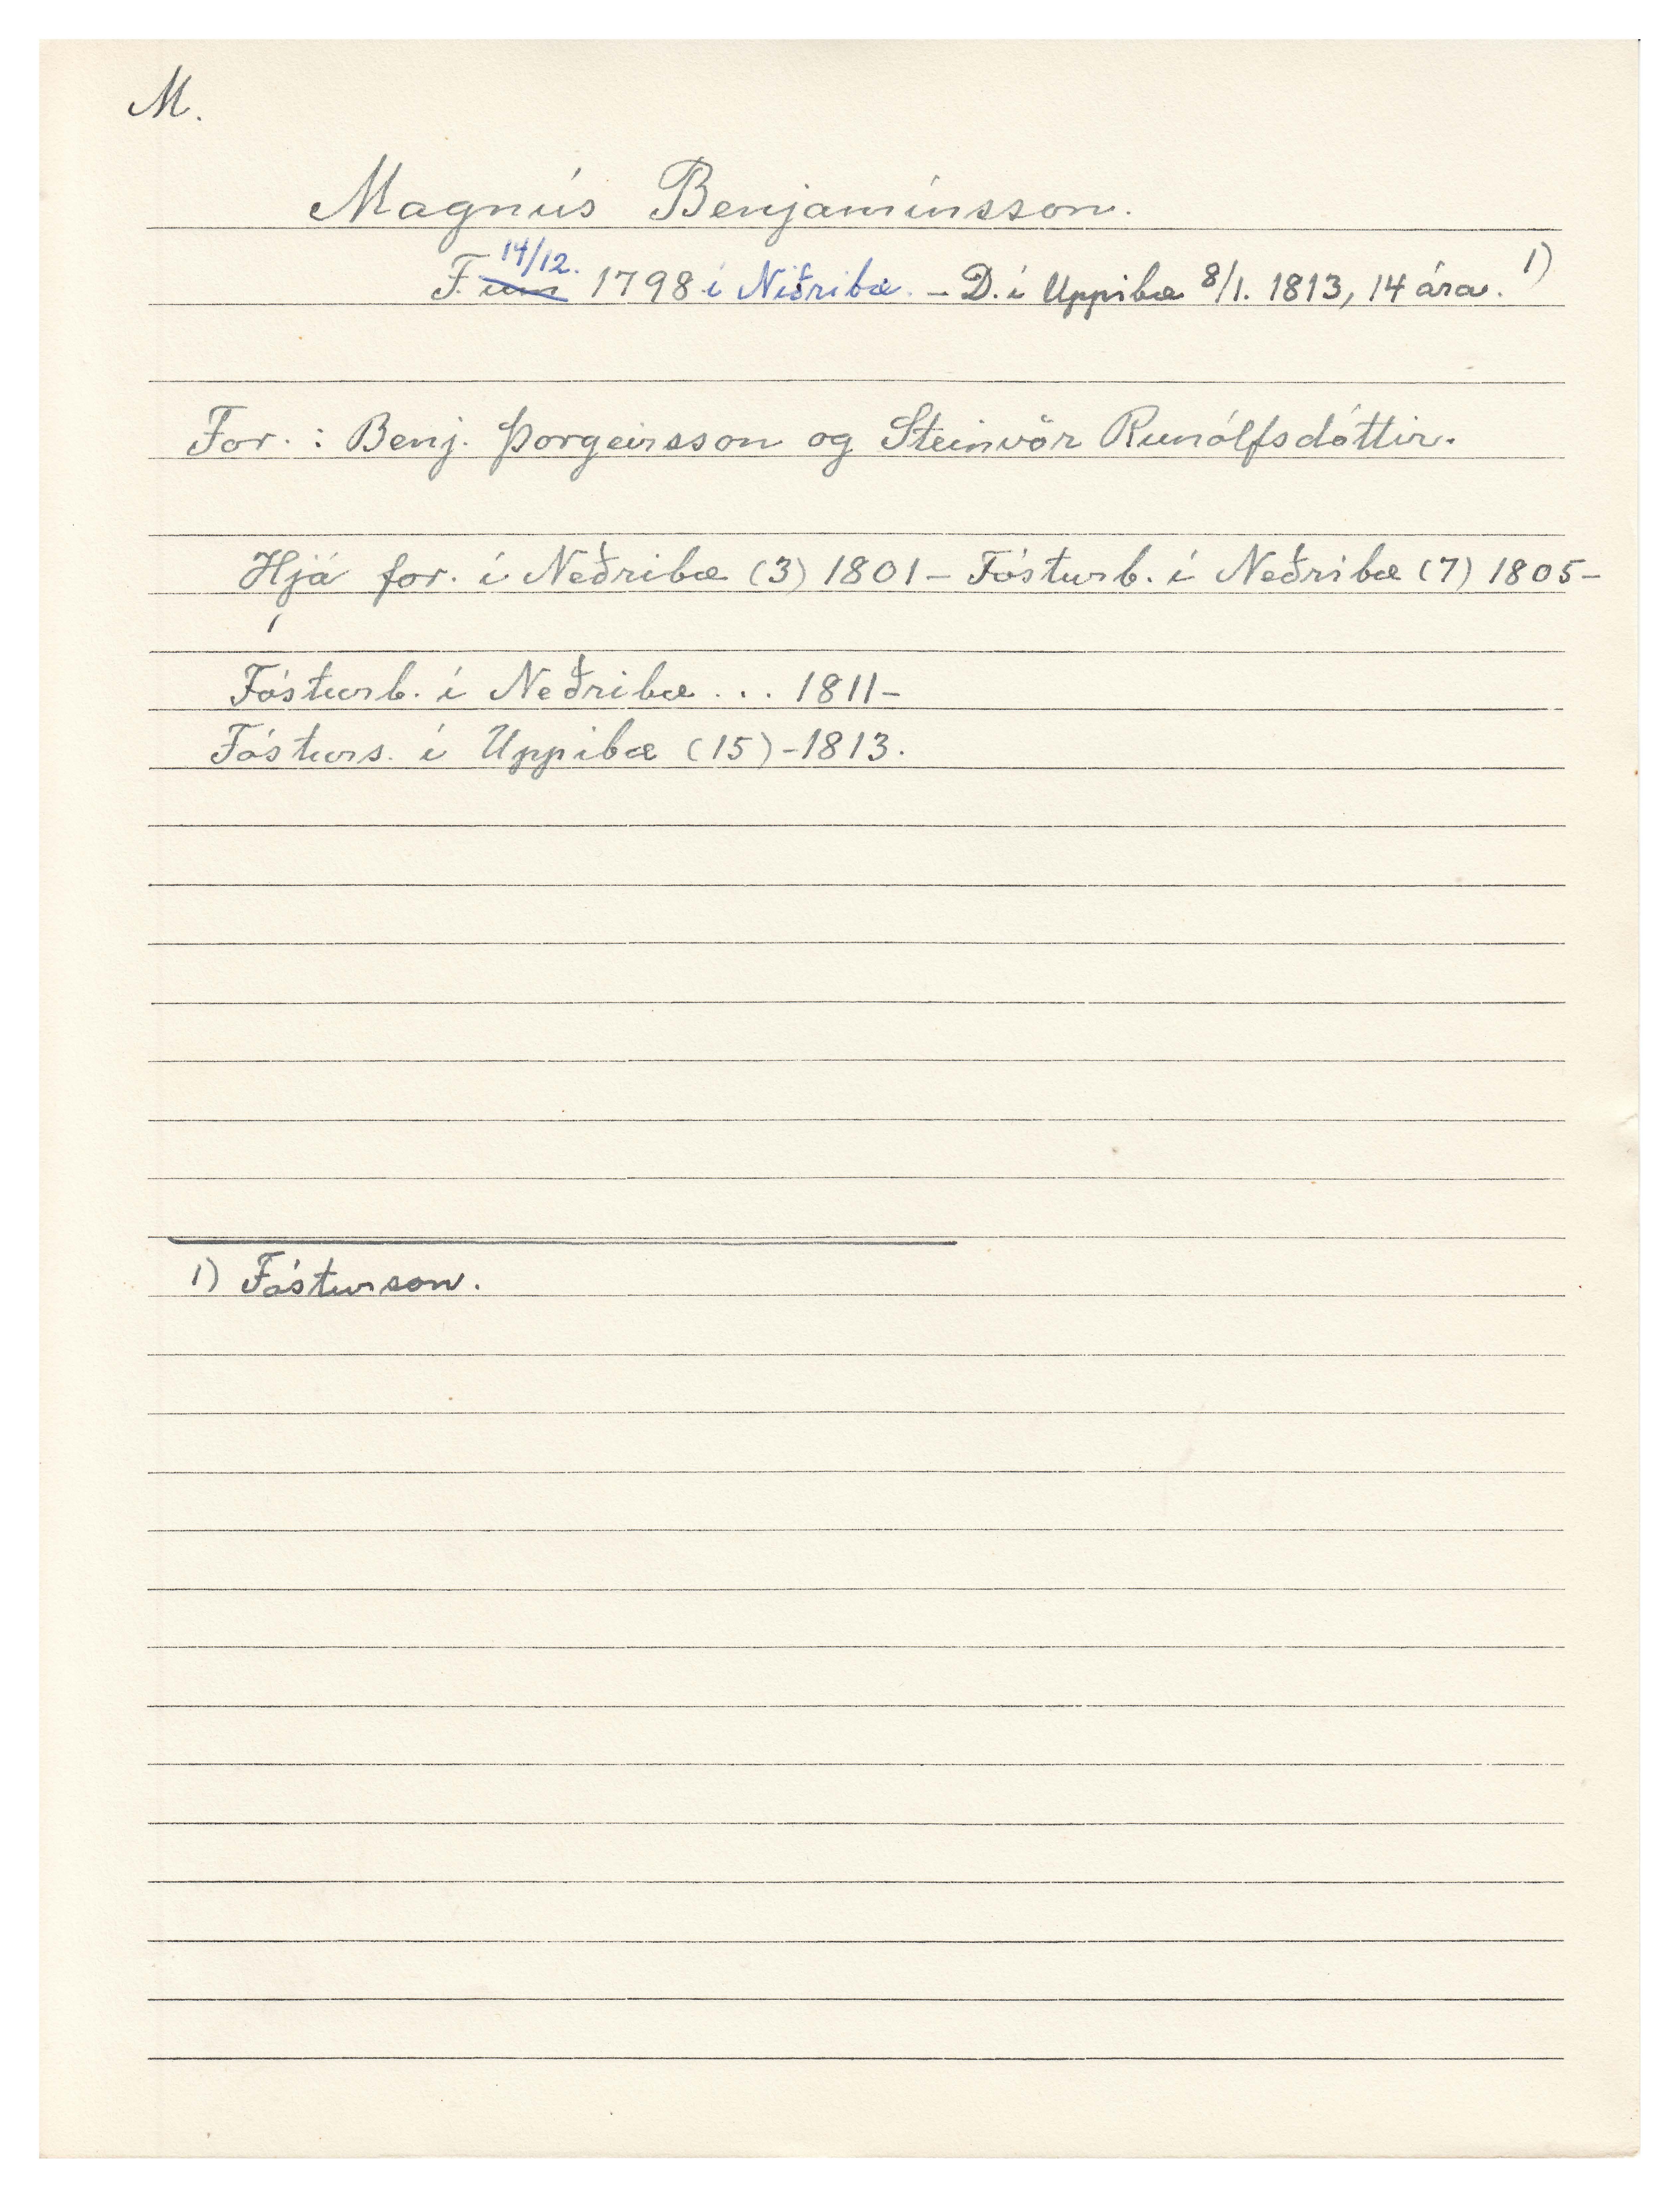 M.
Magnús Benjamínsson.
F. um 14/12. 1798 í Niðribæ. - D. í Uppibæ 8/1. 1813, 14 ára. 1)
For. : Benj. Þorgeirsson og Steinvör Runólfsdóttir.
Hjá for. í Neðribæ (3) 1801 - Fósturb. í Neðribæ (7) 1805 -
Fósturb. í Neðribæ ... 1811 -
Fósturs. í Uppibæ (15) - 1813.
1) Fósturson.